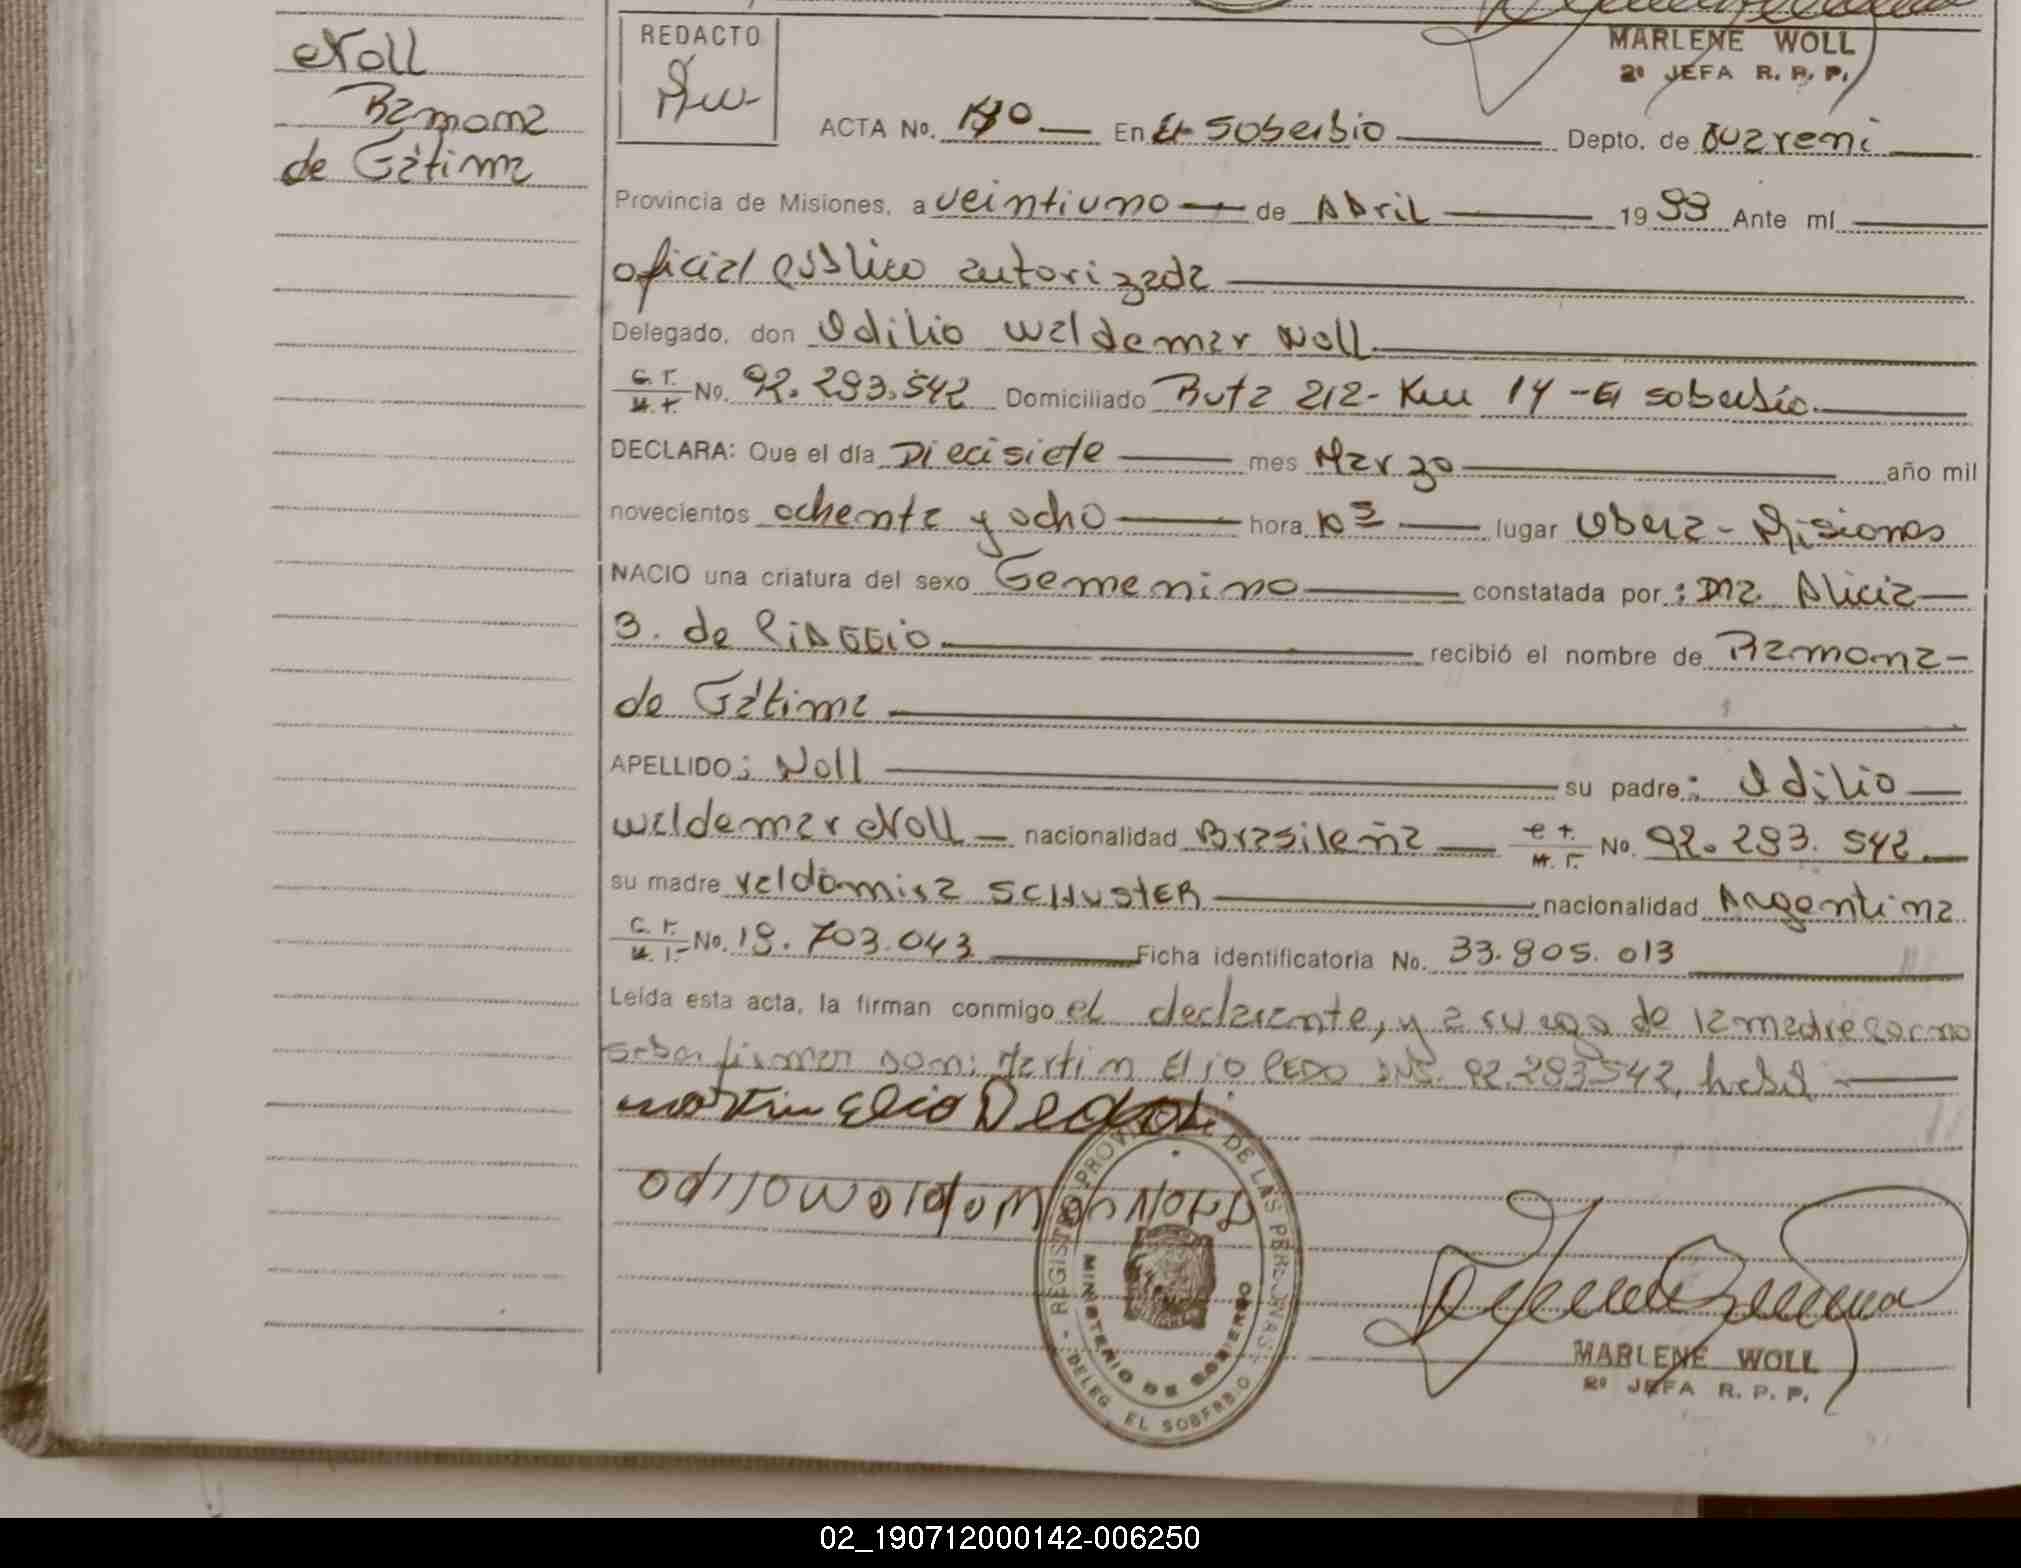 Noll
Ramona
de Fátima
REDACTO
MARLENE WOLL
2º JEFA R. P. P.
ACTA No. En El Soberbio Depto. de Guarani
Provincia de Misiones, a veintiuno de Abril 1999 Ante mí
oficial público autorizada
Delegado, don Odilio Waldemar Noll
C. I. M. I. No. 92.293.542 Domiciliado Ruta 212- Km 14 -El soberbio.
DECLARA: Que el día Diecisiete mes Marzo año mil
novecientos ochenta y ocho hora 10 lugar Obera - Misiones
NACIO una criatura del sexo Femenino constatada por: Dra. Alicia
B. de PiAGGio recibió el nombre de Ramona-
de Fátima
APELLIDO: Noll su padre: Odilio
Waldemar Noll nacionalidad Brasileña C. I. M. I. No. 92.293.542
su madre Valdomira SCHUSTER nacionalidad Argentina
C. I. M. I. No. 18.703.043 Ficha identificatoria No. 33.905.013
Leída esta acta, la firman conmigo el declarante, y a ruego de la madre por no
saber firmar don: Martin Elio DNI. 92.293542, habil
REGISTRO PROVINCIAL DE LAS PERSONAS
MINISTERIO DE GOBIERNO
DELEG EL SOBERBIO
MARLENE WOLL
2º JEFA R. P. P.
02_190712000142-006250